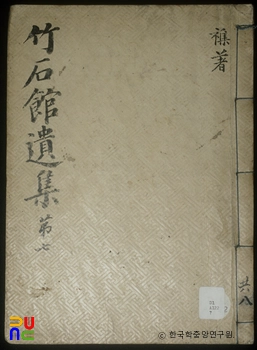 雜著
竹石館遺集 第七
共八
ⓒ 한국학중앙연구원